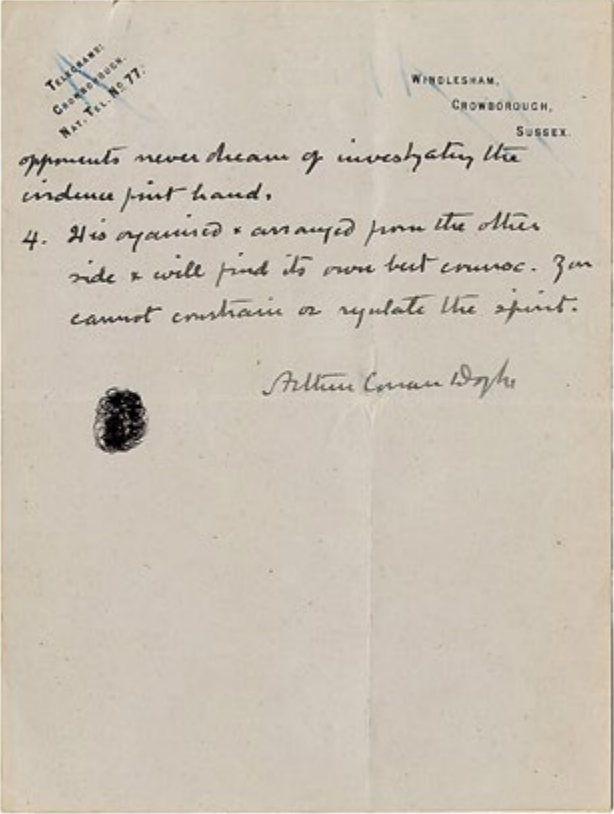 TELEGRAMS:
CROWBOROUGH.
NAT. TEL. No 77.
WINDLESHAM,
CROWBOROUGH,
SUSSEX.
opponents never dream of investigating the
evidence first hand.
4. It is organised & arranged from the other
side & will find its own best course. You
cannot constrain or regulate the spirit.
Arthur Conan Doyle